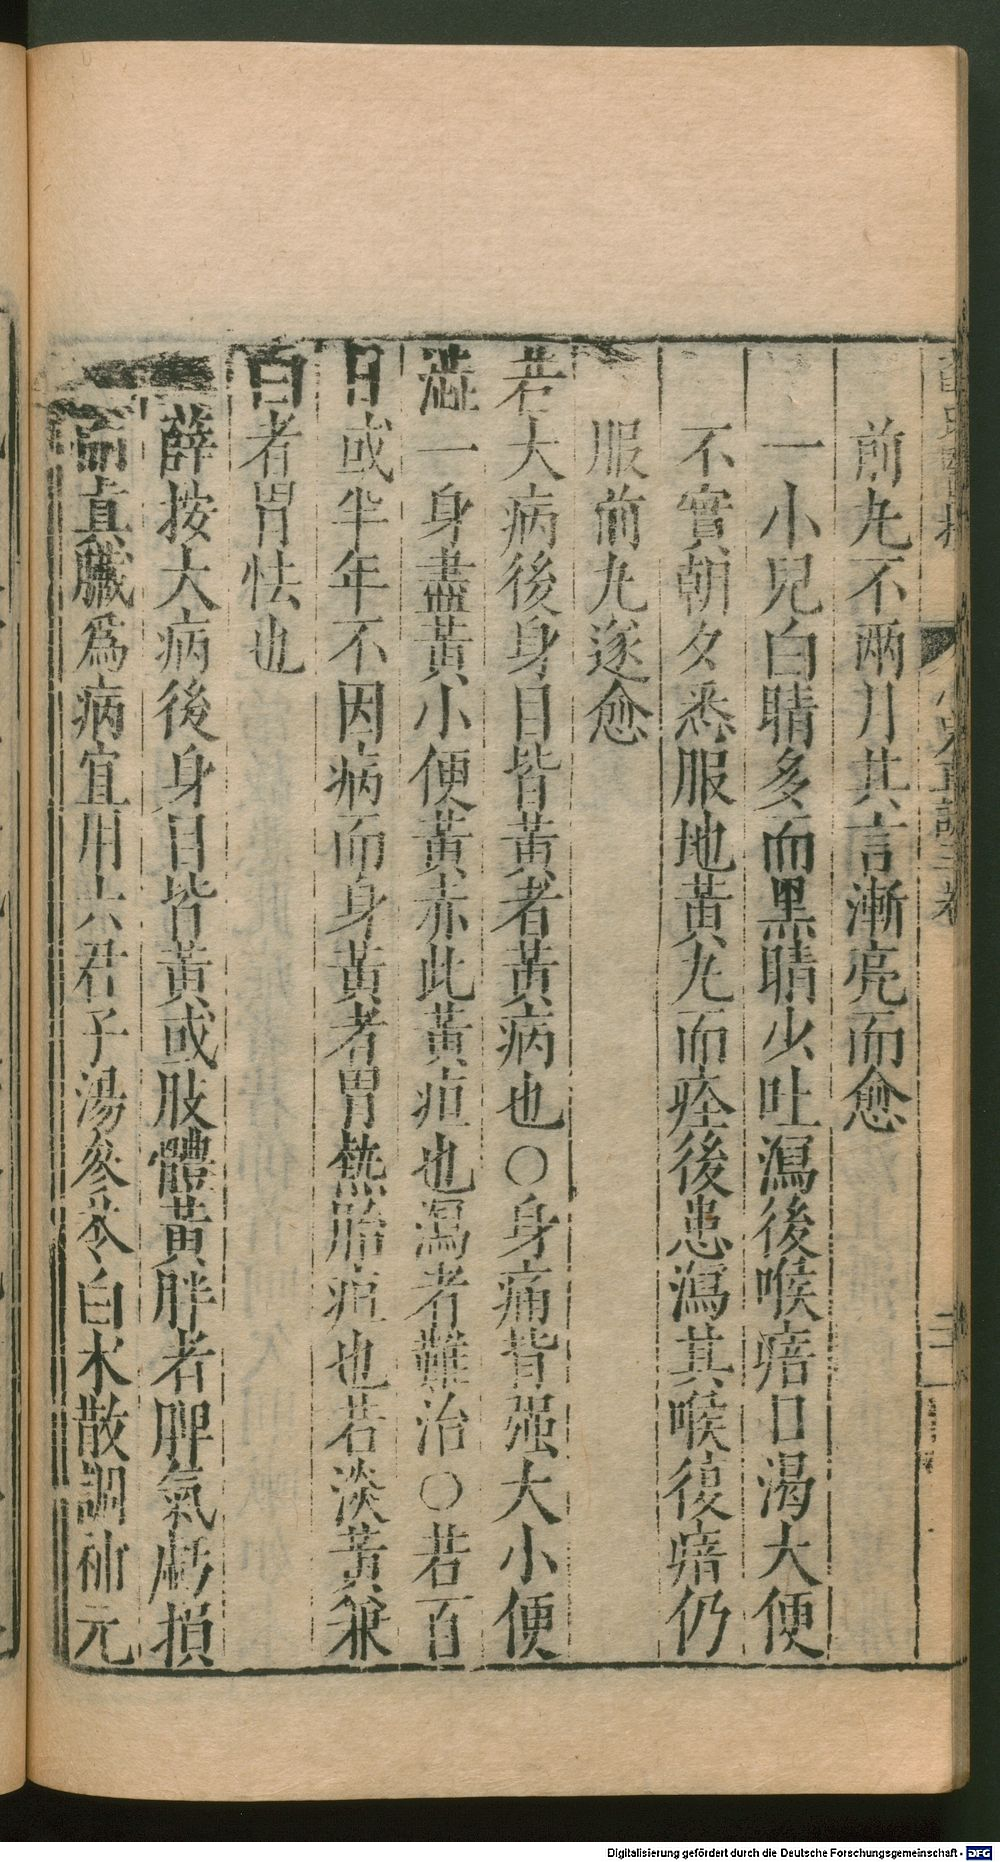 前九不兩月其言漸亮而愈
一小兒白睛多而黑睛少吐瀉後喉瘖口渴大便
不實朝夕悉服地黃丸而痊後患瀉其喉復瘖仍
服前丸遂愈
若大病後身目皆黃者黃病也○身痛背强大小便
澁一身盡黃小便黃赤此黃疸也瀉者難治○若百
日或半年不因病而身黃者胃熱胎疸也若淡黃兼
白者胃怯也
薛按大病後身目皆黃或肢體黃胖者脾氣虧損
而眞臟爲病宜用六君子湯參苓白朮散調補元
Digitalisierung gefördert durch die Deutsche Forschungsgemeinschaft - DFG